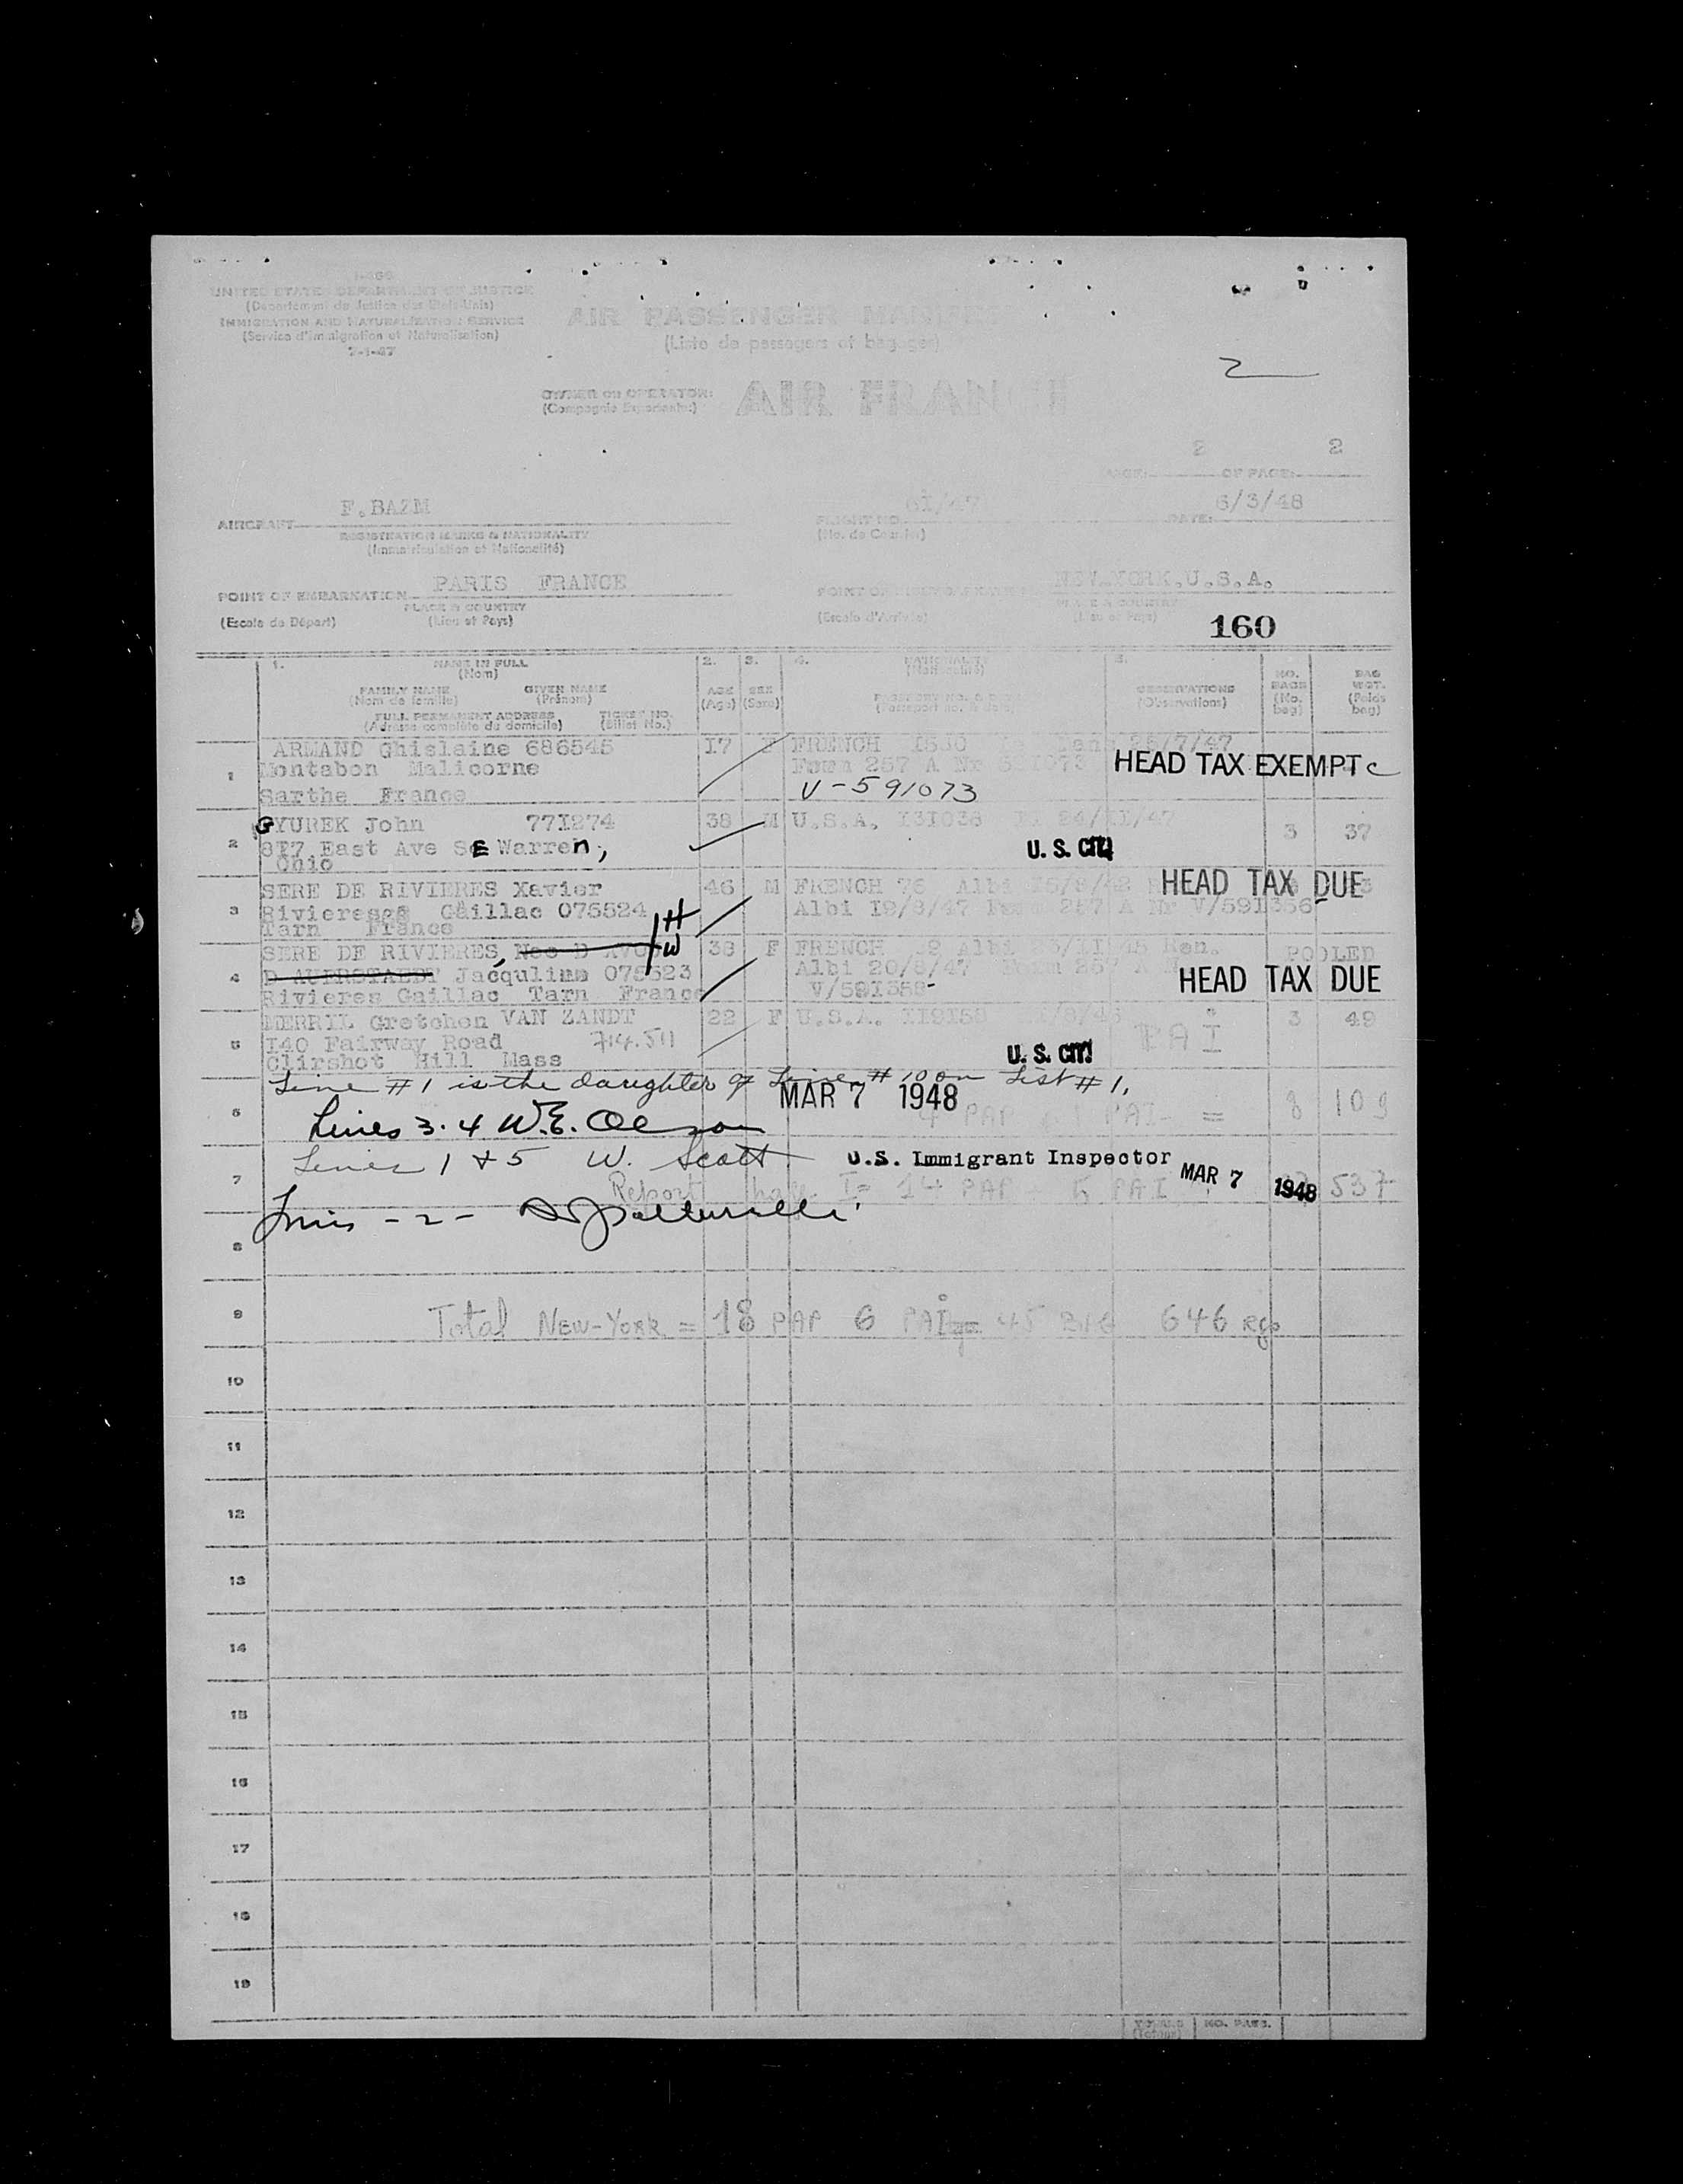 I-466
UNITED STATES DEPARTMENT OF JUSTICE
(Département de Justice des Etats-Unis)
IMMIGRATION AND NATURALIZATION SERVICE
(Service d'immigration et Naturalisation)
7-1-47
AIR PASSENGER
(Liste de passagers et bagages)
2
OWNER OR OPERATOR:
AIR FRANCE
2 2
PAGE: OF PAGE:
F.BAZM 6I/47 6/3/48
AIRCRAFT FLIGHT NO. DATE:
REGISTRATION MARKS & NATIONALITY (No. de Courrier)
(Immatriculation et Nationalité)
PARIS FRANCE NEW.YORK.U.S.A.
POINT OF EMBARKATION
PLACE & COUNTRY
(Escale de Départ) (Lieu et Pays) (Escale d'Arrivée) (Lieu et Pays)
160
1. NAME IN FULL 2. 3. 4. NATIONALITY 5. NO. BAG
(Nom) (Nationalité) BAGS WGT.
FAMILY NAME GIVEN NAME AGE SEX PASSPORT NO. & DATE OBSERVATIONS (No. (Poids
(Nom de famille) (Prénom) (Age) (Sexe) (Passeport no. & date) (Observations) bag) bag)
FULL PERMANENT ADDRESS TICKET NO.
(Adresse complète du domicile) (Billet No.)
1 ARMAND Ghislaine 686545 I7 F FRENCH I530 25/7/47
Montabon Malicorne 257 A Nr 591073 HEAD TAX EXEMPT c
Sarthe France V-591073
2 GYUREK John 77I274 38 M U.S.A. I3I038 24/II/47 3 37
8I7 East Ave SE Warren, U. S. CIT.
Ohio
3 SERE DE RIVIERES Xavier 46 M FRENCH 76 Albi HEAD TAX DUE
Rivieres Gaillac 075524 H Albi I9/8/47 257 A Nr V/59I356
Tarn France
4 SERE DE RIVIERES, Nee D W 38 F FRENCH Albi Ren. POOLED
D AUERSTAEDT Jacquline 075523 Albi 20/8/47 HEAD TAX DUE
Rivieres Gaillac Tarn France V/59I358-
5 MERRIL Gretchen VAN ZANDT 22 F U.S.A. II9I58 3 49
I40 Fairway Road 714.511 PAI
Clirshot Hill Mass U. S. CIT.
Line #1 is the daughter of Line #10 on List #1.
MAR 7 1948
6 PAP PAI = 8 109
Lines 3.4 W.E. Olson
Lines 1 & 5 W. Scott U.S. Immigrant Inspector MAR 7 1948
7 Report I= 14 PAP 5 PAI 537
- 2 -
8
9 Total NEW-YORK = 18 PAP 6 PAI = 45 646
10
11
12
13
14
15
16
17
18
19
TOTALS NO. PASS.
(Totaux)